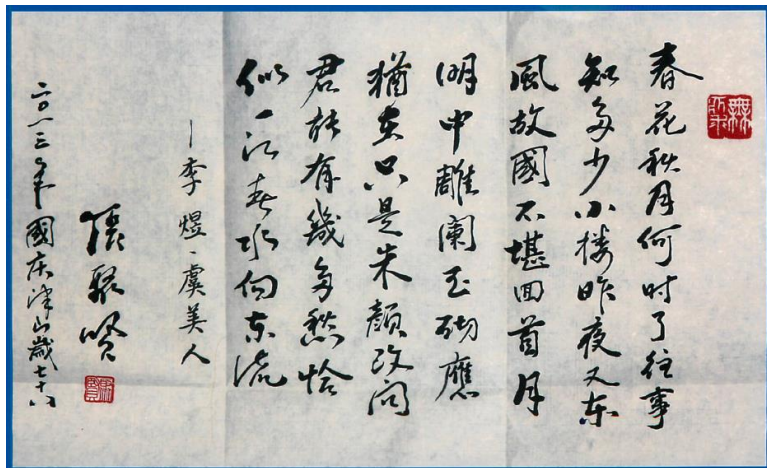 春花秋月何时了往事
知多少小楼昨夜又东
風故國不堪回首月
明中雕闌玉砌應
猶在只是朱顔改问
君能有幾多愁恰
似一江春水向东流
—李煜、虞美人
張贤
二〇一三年國庆津山歲七十八